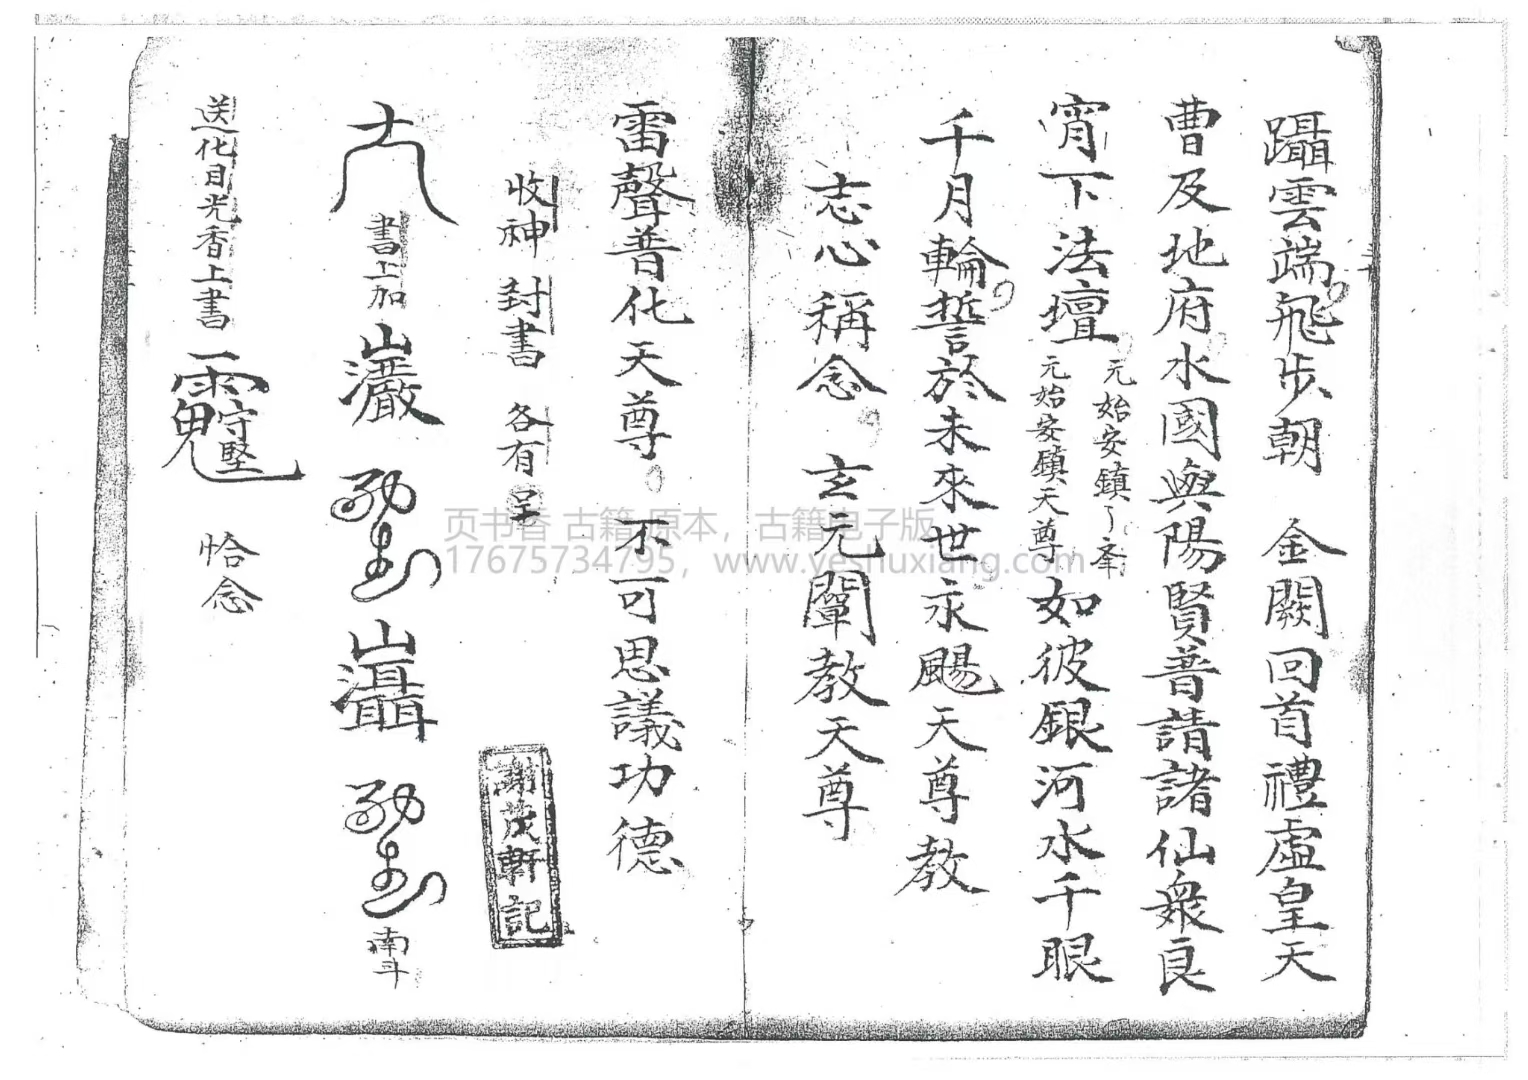 躡雲端飛步朝　金闕回首禮虛皇天
曹及地府水國與陽賢普請諸仙衆良
宵下法壇
元始安鎮了奉
元始安鎮天尊
如彼銀河水千眼
千月輪誓於未來世永颺天尊教
志心稱念　玄元闡教天尊
雷聲普化天尊　不可思議功德
收神　封書　各有呈
謝茂軒記
書上加
南斗
送化目光香上書
恰念
页书香 古籍 原本，古籍电子版
17675734795，www.yeshuxiang.com